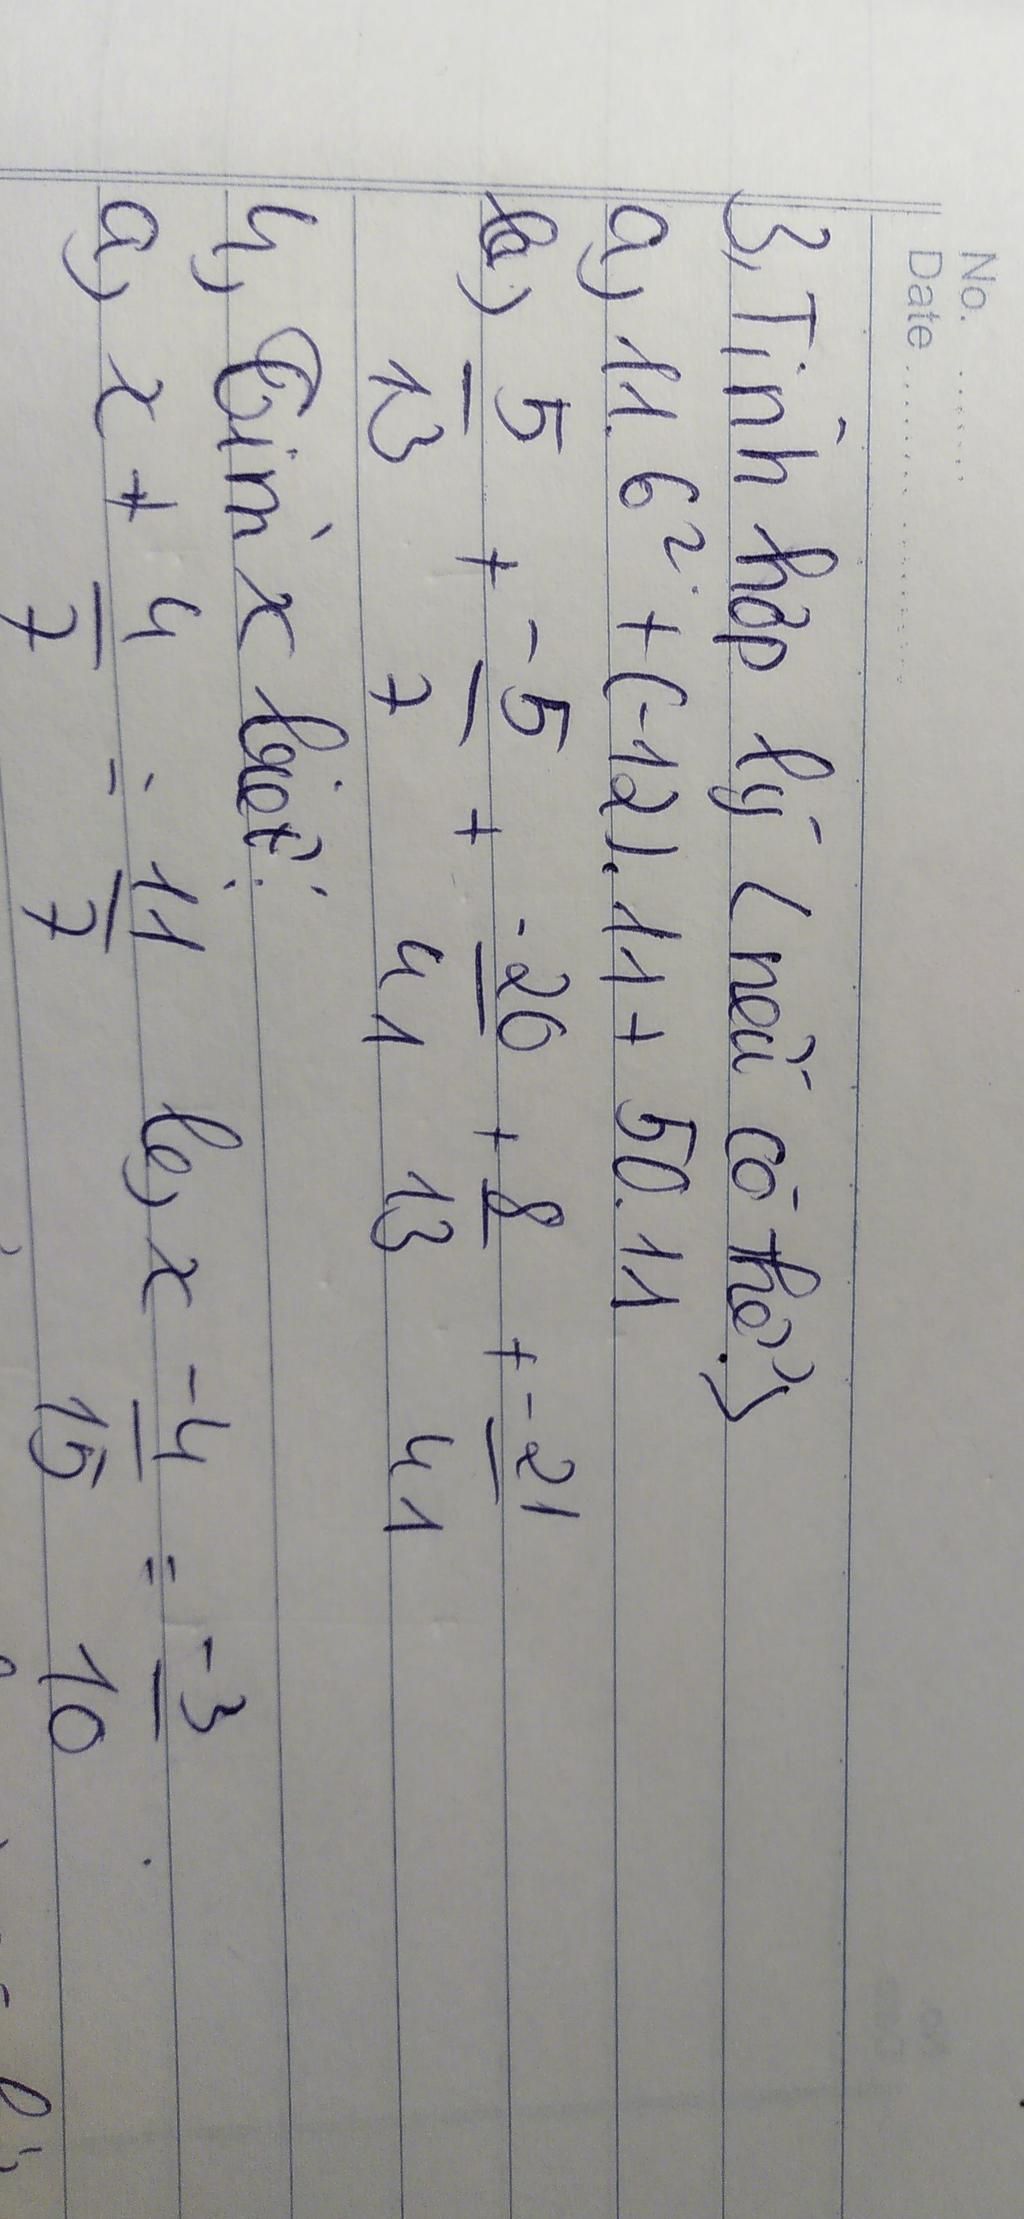 No. ......
Date .....................
3, Tính hợp lý (nếu có thể)
a, 11. 6² + (-12). 11 + 50. 11
b, 5/13 + -5/7 + -20/41 + 8/13 + -21/41
4, Tìm x biết:
a, x + 4/7 = 11/7 b, x - 4/15 = -3/10